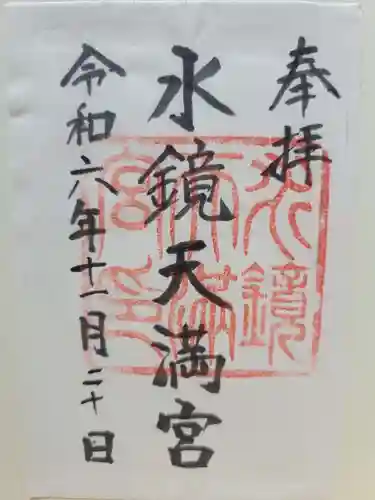 奉拝
水鏡天満宮
令和六年十一月二十日
水鏡
天満
宮印